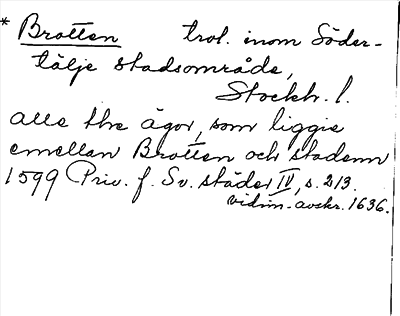 * Brotten trol. inom Söder-
tälje stadsområde,
Stockh. l.
alle the ägor, som liggie
emellan Brotten och stadenn
1599 Priv. f. Sv. städer IV, s. 213.
vidim. avskr. 1636.